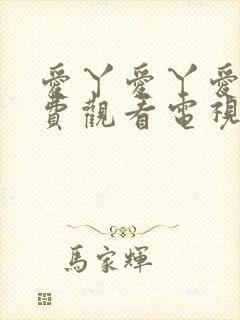 愛丫愛丫愛
費觀看電視
馬家輝